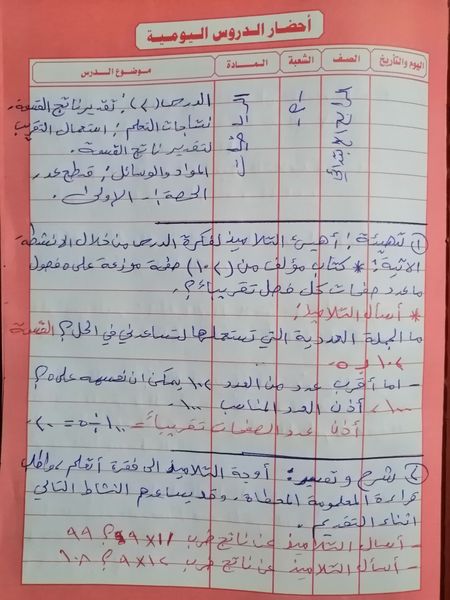 أحضار الدروس اليومية
اليوم والتاريخ الصف الشعبة المادة موضوع الدرس
الرابع الابتدائي أ ب الرياضيات الدرس (٢) : تقدير ناتج القسمة.
نتاجات التعلم : استعمال التقريب
لتقدير ناتج القسمة.
المواد والوسائل : قطع عد.
الحصة : الاولى.
① تهيئة : أهيئ التلاميذ لفكرة الدرس من خلال الانشطة
الآتية : * كتاب مؤلف من (١٠٢) صفحة موزعة على ٥ فصول
ما عدد صفحات كل فصل تقريباً؟.
* أسأل التلاميذ :
ما الجملة العددية التي تستعملها لتساعدني في الحل؟ القسمة
١٠٢ ÷ ٥
- ما أقرب عدد من العدد ١٠٢ يمكن ان نقسمه على ٥؟
١٠٠ ، أذن العدد المناسب ١٠٠
أذن عدد الصفحات تقريباً = ١٠٠ ÷ ٥ = ٢٠
② شرح وتفسير : أوجه التلاميذ الى فقرة أتعلم، واطلب
قراءة المعلومة المعطاة. وقد يساعدهم النشاط التالي
اثناء التقديم.
- أسأل التلاميذ عن ناتج ضرب ١١ × ٩؟ ٩٩
- أسأل التلاميذ عن ناتج ضرب ١٢ × ٩؟ ١٠٨